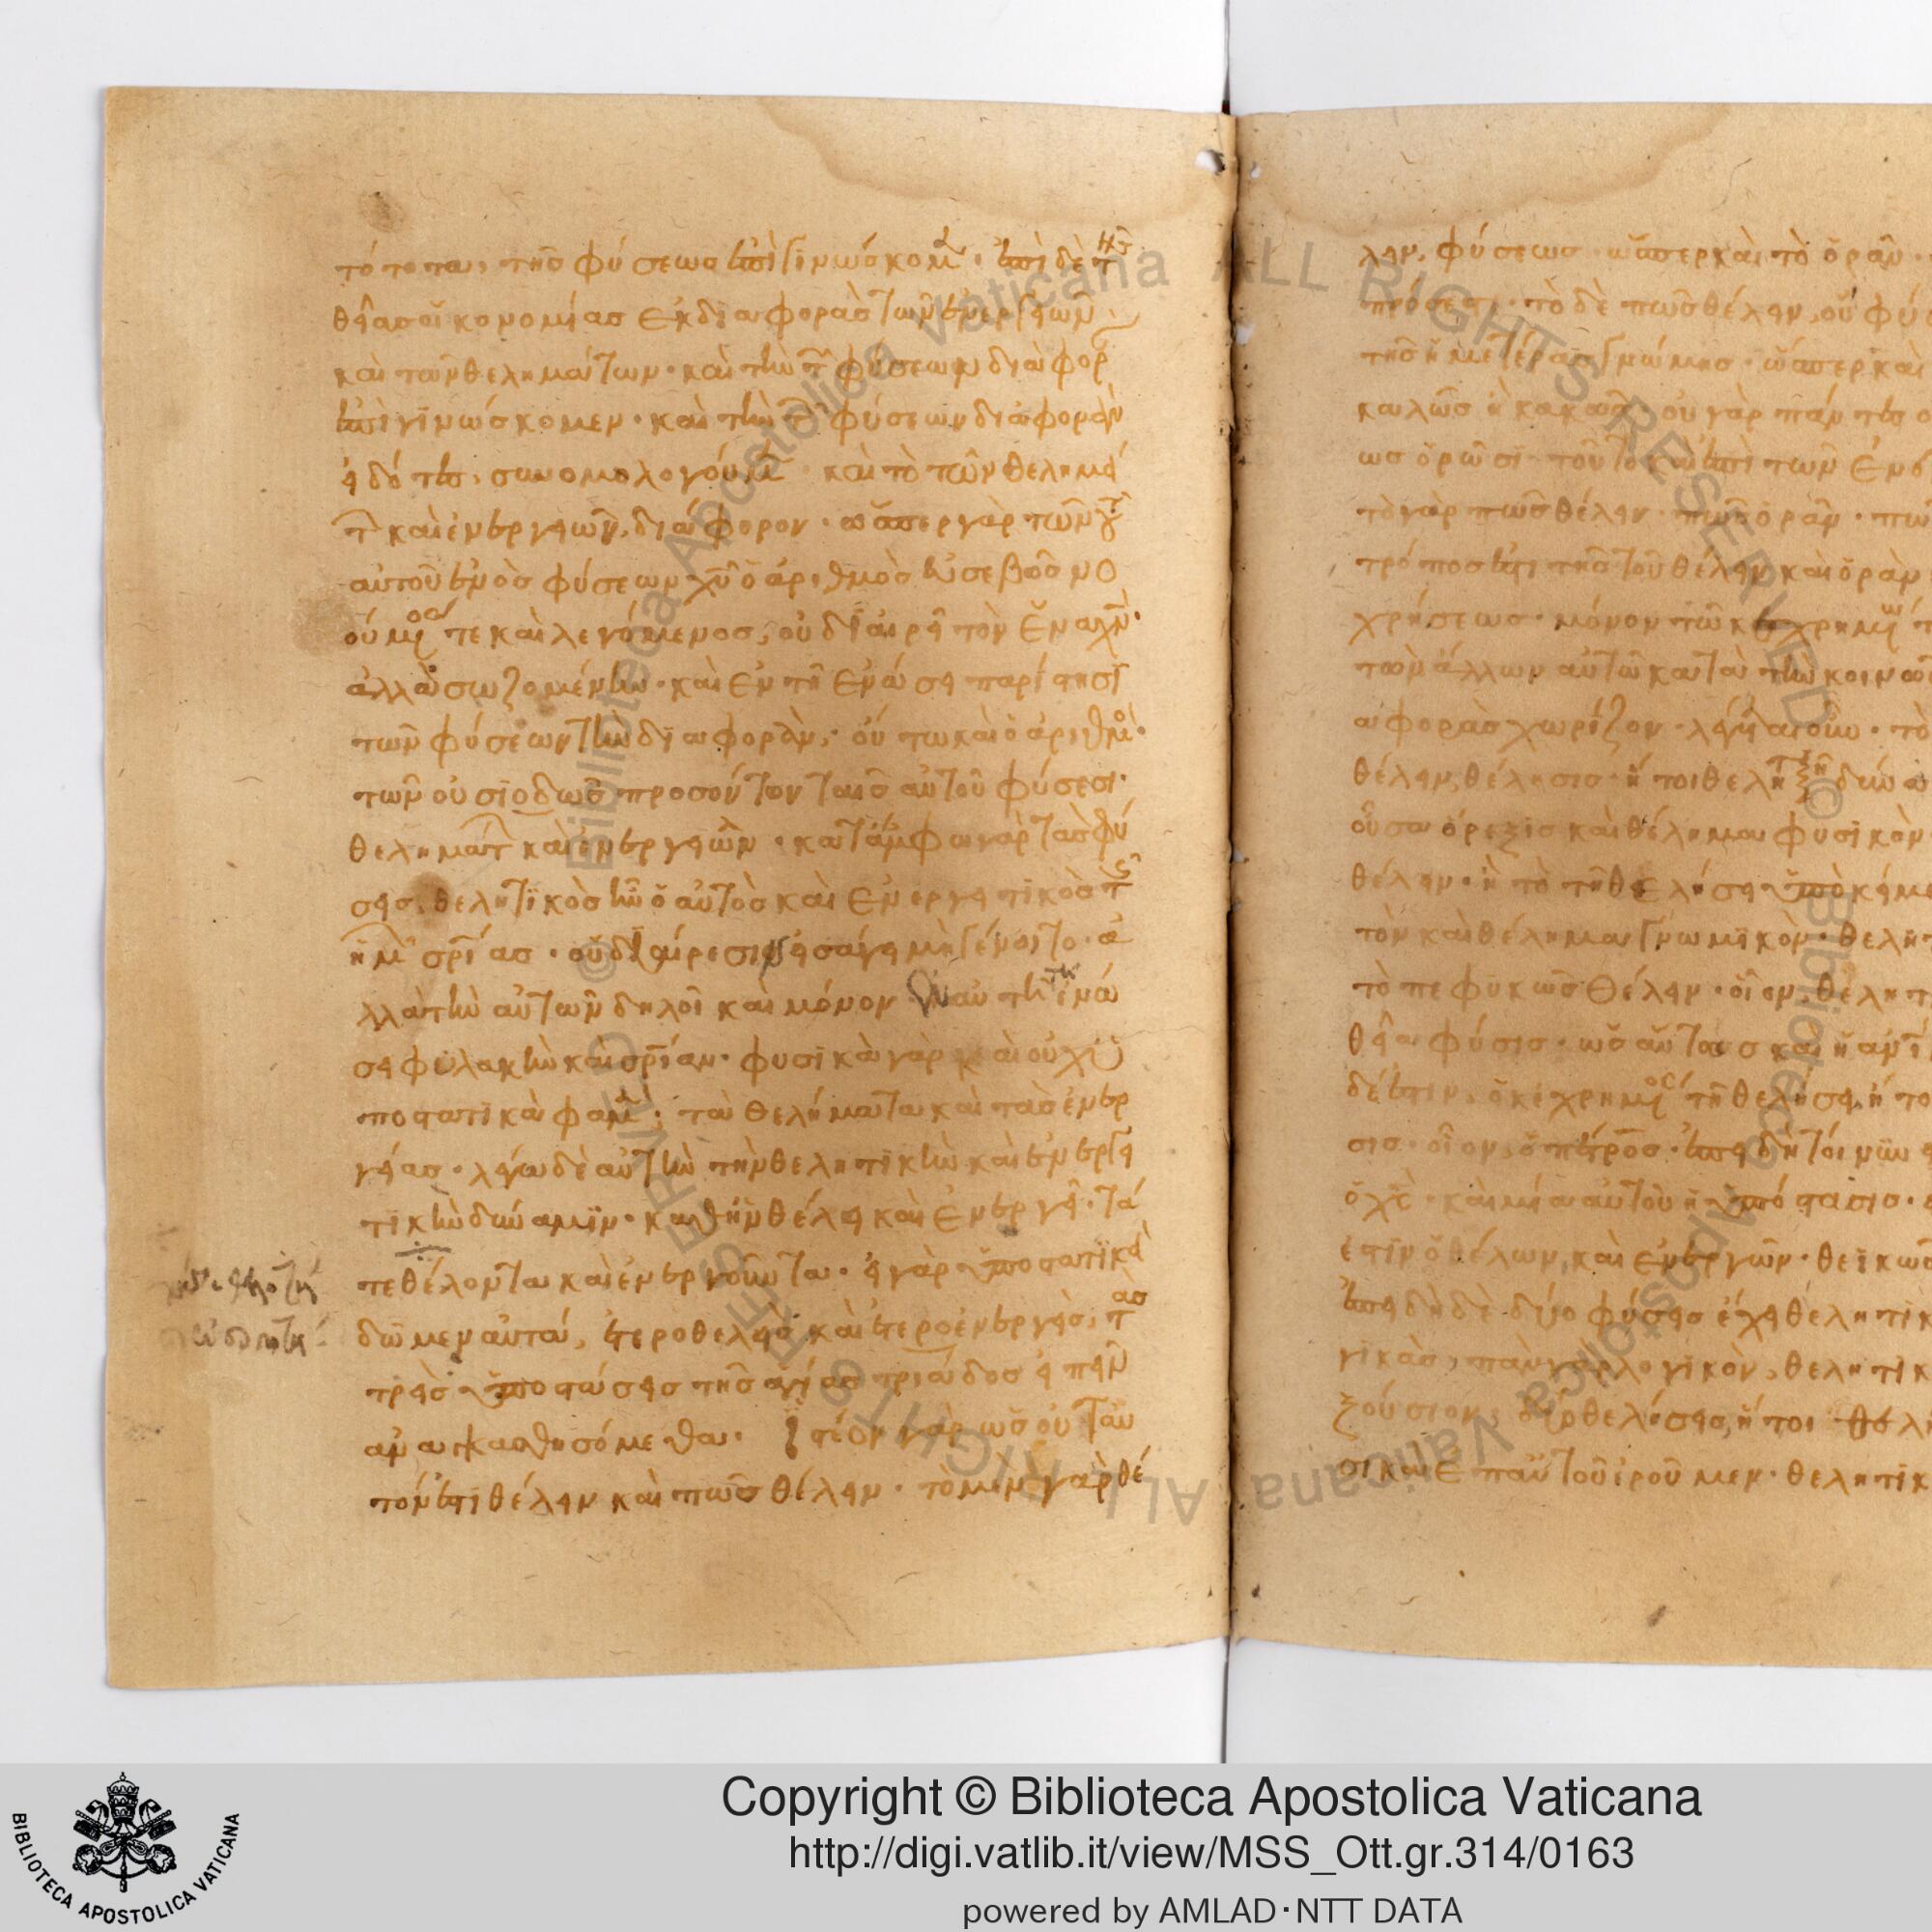 τό το ταυ, τῆς φύσεως ἐπιγινώσκομ· ἐπὶ δὲ τῆς
θείας οἰκονομίας ἐκ διαφορᾶς τῶν ἐνεργειῶν
καὶ τῶν θελημάτων· καὶ τὴν τ φύσεων διαφορ
ἐπιγινώσκομεν· καὶ τὴν τ φύσεων διαφορὰν
εἰδότες, συνομολογοῦμ καὶ τὸ τῶν θελημά
τ καὶ ἐνεργειῶν, διάφορον· ὥσπερ γὰρ τῶν τοῦ
αὐτοῦ ἑνὸς φύσεων χῦ ὁ ἀριθμὸς εὐσεβῶς νο
ούμενος τε καὶ λεγόμενος, οὐ διαιρεῖ τὸν ἕνα χν·
ἀλλὰ σωζομένην· καὶ ἐν τῆ ἑνώσει παρίστησι
τῶν φύσεων τὴν διαφορὰν, οὕτω καὶ ὁ ἀριθμὸ·
τῶν οὐσιοδῶς προσόντων ταῖς αὐτοῦ φύσεσι·
θελημάτ καὶ ἐνεργειῶν· κατάμφω γὰρ τὰς φύ
σεις, θελητικὸς ἦν ὁ αὐτὸς καὶ ἐνεργειτικὸς τῆς
ἡμ σρίας· οὐ διαίρεσιν εἰσάγει μὴ γένοιτο· ἀ
λλὰ τὴν αὐτῶν δηλοῖ καὶ μόνον ἐν αὐτῆ τῆ ἑνώ
σει φυλακὴν καὶ σρίαν· φυσικὰ γὰρ καὶ οὐχ ὑ
ποστατικὰ φαμ· τὰ θελήματα καὶ τὰς ἐνερ
γείας· λέγω δὲ αὐτὴν τὴν θελητικὴν καὶ ἐνεργη
τικὴν δύναμιν· καθἣν θέλει καὶ ἐνεργεῖ· τά
τε θέλοντα καὶ ἐνεργοῦντα· εἰ γὰρ ὑποστατικὰ
δῶμεν αὐτά, ἑτεροθελεῖς καὶ ἑτεροενεργεῖς, τὰς
τρεῖς ὑποστάσεις τῆς ἁγίας τριάδος εἰπεῖν
ἀναγκασθησόμεθα· ἰστέον γὰρ ὡς οὐ ταὐ
τόν ἐστι θέλειν καὶ πῶς θέλειν· τὸ μὲν γὰρ θέ
λειν, φύσεως· ὥσπερ καὶ τὸ ὁρᾶν·
πρόσεστι· τὸ δὲ πῶς θέλειν, οὐ φύ
τῆς ἡμετέρας γνώμης· ὥσπερ καὶ
καλῶς ἢ κακῶς· οὐ γὰρ πάντες
ὡς ὁρῶσι τοῦτο καὶ ἐπὶ τῶν ἐνε
τὸ γὰρ πῶς θέλειν· πῶς ὁρᾶν·
τρόπος ἐστι τῆς τοῦ θέλειν καὶ ὁρᾶν
χρήσεως· μόνον τῶ κεχρημένω
τῶν ἄλλων αὐτῶ κατὰ τὴν κοινῶ
αφορὰς χωρίζον· λέγεται οὖν· τὸ
θέλειν, θέλησις· ἤτοι θελητικὴ δύνα
οὖσα ὄρεξις καὶ θέλημα φυσικὸν
θέλειν· ἢ τὸ τῆ θελήσει ὑποκείμε
τὸν καὶ θέλημα γνωμικὸν· θελητ
τὸ πεφυκὼς θέλειν· οἷον, θελητ
θεία φύσις· ὡσαύτως καὶ ἡ ἀν
δέ ἐστιν, ὁ κεχρημένος τῆ θελήσει, ἤτο
σις· οἷον, ὁ πέτρος· ἐπειδὴ τοίνυν
ὁ χς· καὶ μία αὐτοῦ ἡ ὑπόστασις·
ἐστὶν ὁ θέλων, καὶ ἐνεργῶν· θεϊκῶς
ἐπειδὴ δὲ δύο φύσεις ἔχει θελητικ
γικὰς, πᾶν γὰρ λογικὸν, θελητικ
ξούσιον, δύο θελήσεις, ἤτοι θελ
σικὰ ἐπαὐτοῦ ἐροῦμεν· θελητικ
Copyright © Biblioteca Apostolica Vaticana
http://digi.vatlib.it/view/MSS_Ott.gr.314/0163
powered by AMLAD·NTT DATA
BIBLIOTECA APOSTOLICA VATICANA
© Biblioteca Apostolica Vaticana ALL RIGHTS RESERVED
© Biblioteca Apostolica Vaticana ALL RIGHTS RESERVED